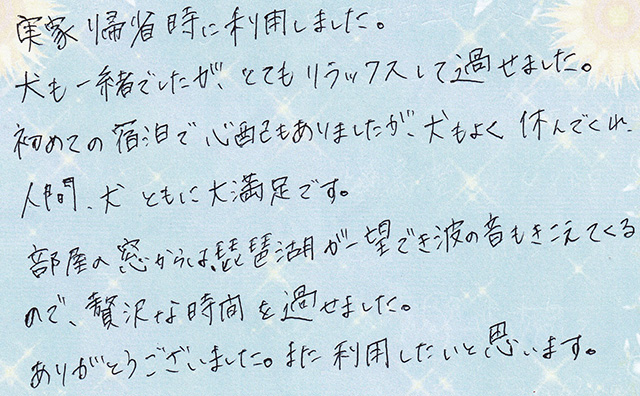 実家帰省時に利用しました。
犬も一緒でしたが、とてもリラックスして過せました。
初めての宿泊で心配もありましたが、犬もよく休んでくれ、
人間、犬ともに大満足です。
部屋の窓からは琵琶湖が一望でき波の音もきこえてくる
ので、贅沢な時間を過せました。
ありがとうございました。また利用したいと思います。